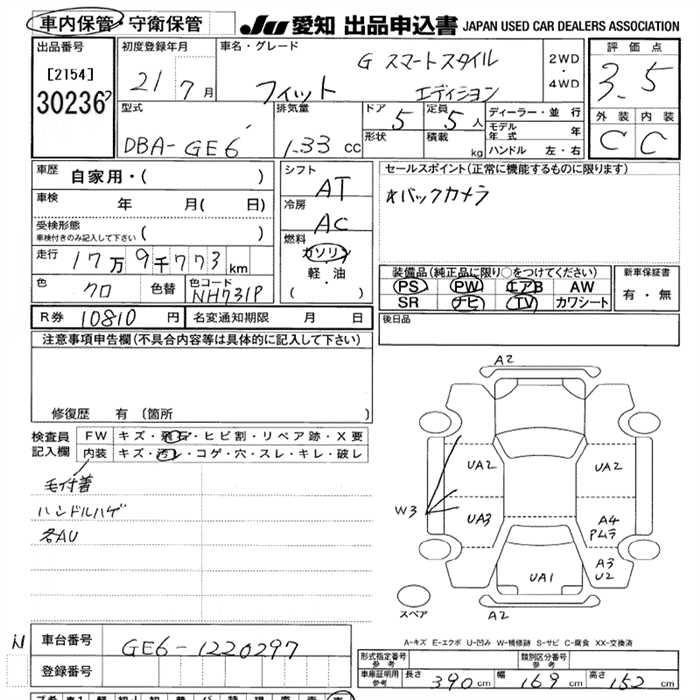 車内保管・守衛保管 JU 愛知 出品申込書 JAPAN USED CAR DEALERS ASSOCIATION
出品番号 初度登録年月 車名・グレード 評価点
[2154] 21年 7月 フィット G スマートスタイル エディション 2WD・4WD 3.5
30236
型式 排気量 ドア 5 定員 5人 ディーラー・並行 外装 内装
DBA-GE6 1.33cc 形状 積載 kg モデル年式 年 C C
ハンドル 左・右
車歴 自家用・( ) シフト AT セールスポイント(正常に機能するものに限ります)
車検 年 月( 日) 冷房 AC *バックカメラ
受検形態 ( )
車検付きのみ記入して下さい
走行 17万9千773km 燃料 ガソリン 軽・油 ( )
装備品(純正品に限り○をつけてください) 新車保証書
色 クロ 色替 色コード NH731P PS PW エアB AW 有・無
SR ナビ TV カワシート
R券 10810円 名変通知期限 月 日 後日品
注意事項申告欄(不具合内容等は具体的に記入して下さい)
修復歴 有(箇所
検査員記入欄 FW キズ・飛石・ヒビ割・リペア跡・X要
内装 キズ・汚レ・コゲ・穴・スレ・キレ・破レ
毛付着
ハンドルハゲ
各AU
A2
UA2 UA2
W3
UA3 A4
Pムラ
A3
UA1 U2
スペア A2
A-キズ E-エクボ U-凹み W-補修跡 S-サビ C-腐食 XX-交換済
車台番号 GE6-1220297
登録番号
形式指定番号 参考 類別区分番号 参考
車庫証明用 参考 長さ 390cm 幅 169cm 高さ 152cm